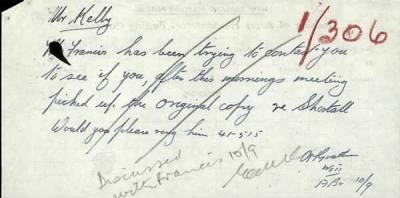 Mr Kelly
1/306
Mr Francis has been trying to contact you
to see if you after this mornings meeting
picked up the original copy re Shotall
Would you please ring him 41515
Discussed
with Francis 10/9
10/9